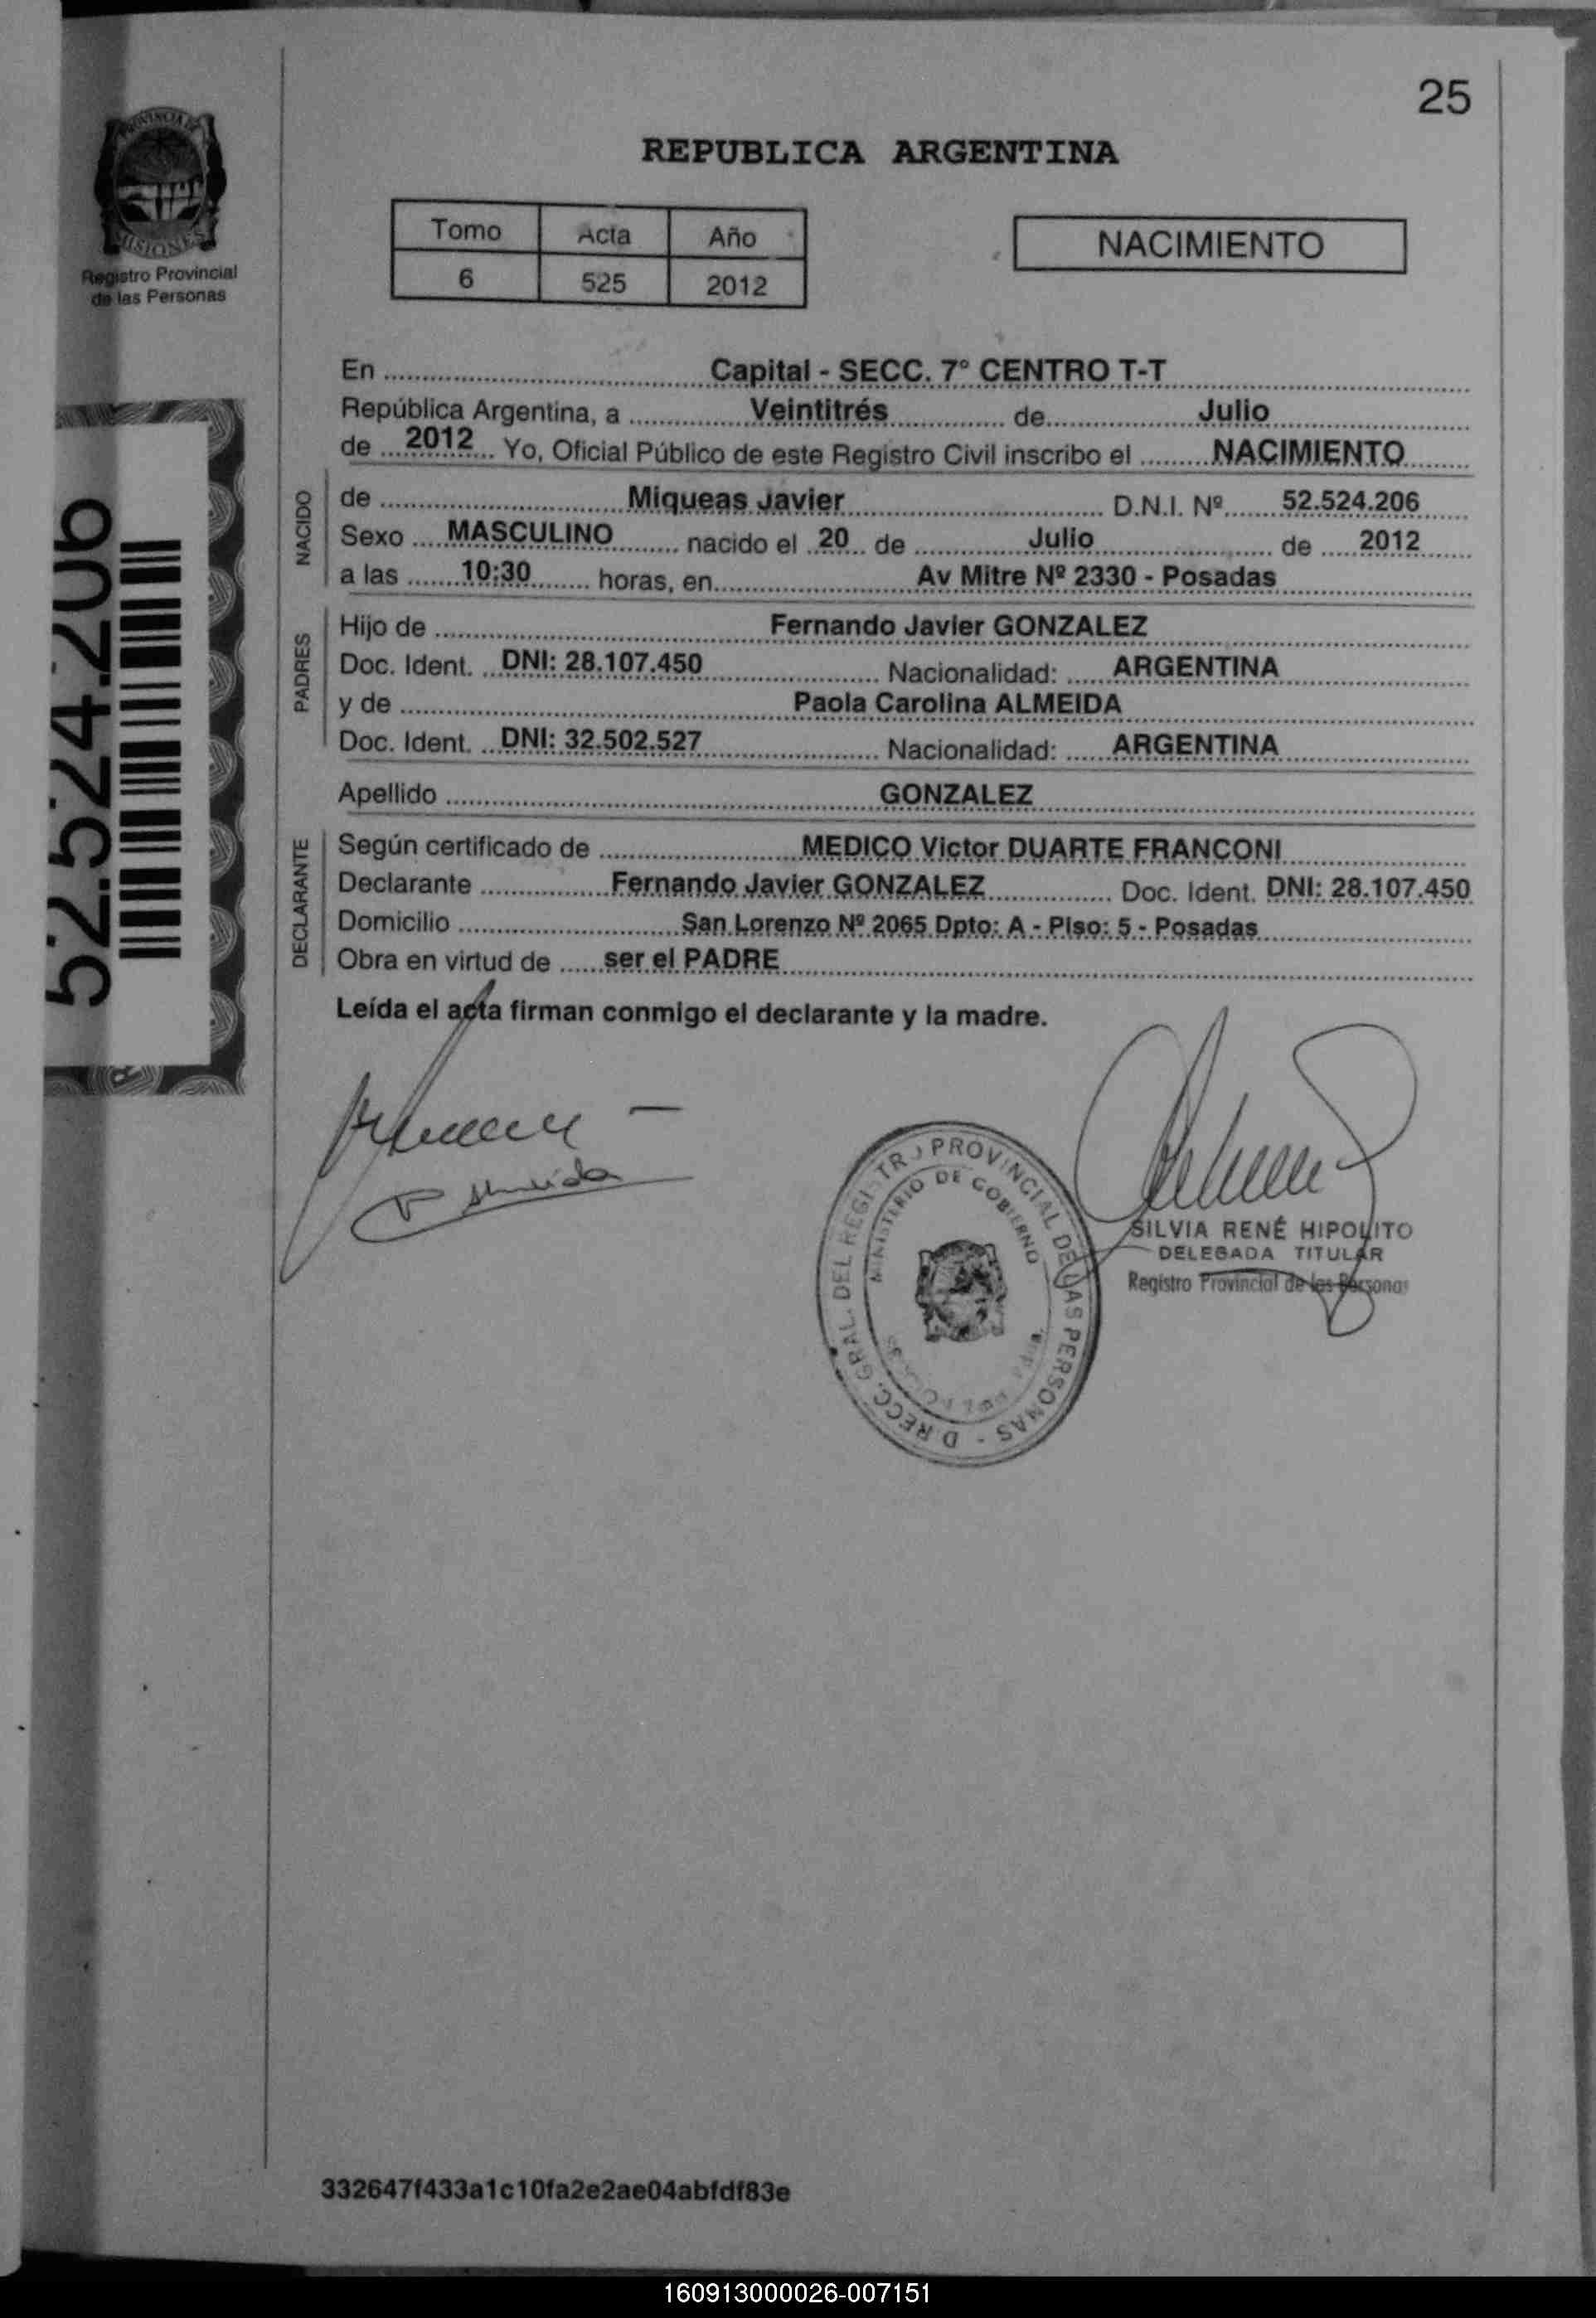 25
PROVINCIA DE
MISIONES
Registro Provincial
de las Personas
REPUBLICA ARGENTINA
Tomo Acta Año
6 525 2012
NACIMIENTO
En Capital - SECC. 7° CENTRO T-T
República Argentina, a Veintitrés de Julio
de 2012 Yo, Oficial Público de este Registro Civil inscribo el NACIMIENTO
NACIDO
de Miqueas Javier D.N.I. Nº 52.524.206
Sexo MASCULINO nacido el 20 de Julio de 2012
a las 10:30 horas, en Av Mitre Nº 2330 - Posadas
PADRES
Hijo de Fernando Javier GONZALEZ
Doc. Ident. DNI: 28.107.450 Nacionalidad: ARGENTINA
y de Paola Carolina ALMEIDA
Doc. Ident. DNI: 32.502.527 Nacionalidad: ARGENTINA
Apellido GONZALEZ
DECLARANTE
Según certificado de MEDICO Victor DUARTE FRANCONI
Declarante Fernando Javier GONZALEZ Doc. Ident. DNI: 28.107.450
Domicilio San Lorenzo Nº 2065 Dpto: A - Piso: 5 - Posadas
Obra en virtud de ser el PADRE
Leída el acta firman conmigo el declarante y la madre.
52.524.206
P Almeida
PROVINCIAL DE LAS PERSONAS
MINISTERIO DE GOBIERNO
GRAL. DEL REGISTRO
SILVIA RENÉ HIPOLITO
DELEGADA TITULAR
Registro Provincial de las Personas
332647f433a1c10fa2e2ae04abfdf83e
160913000026-007151